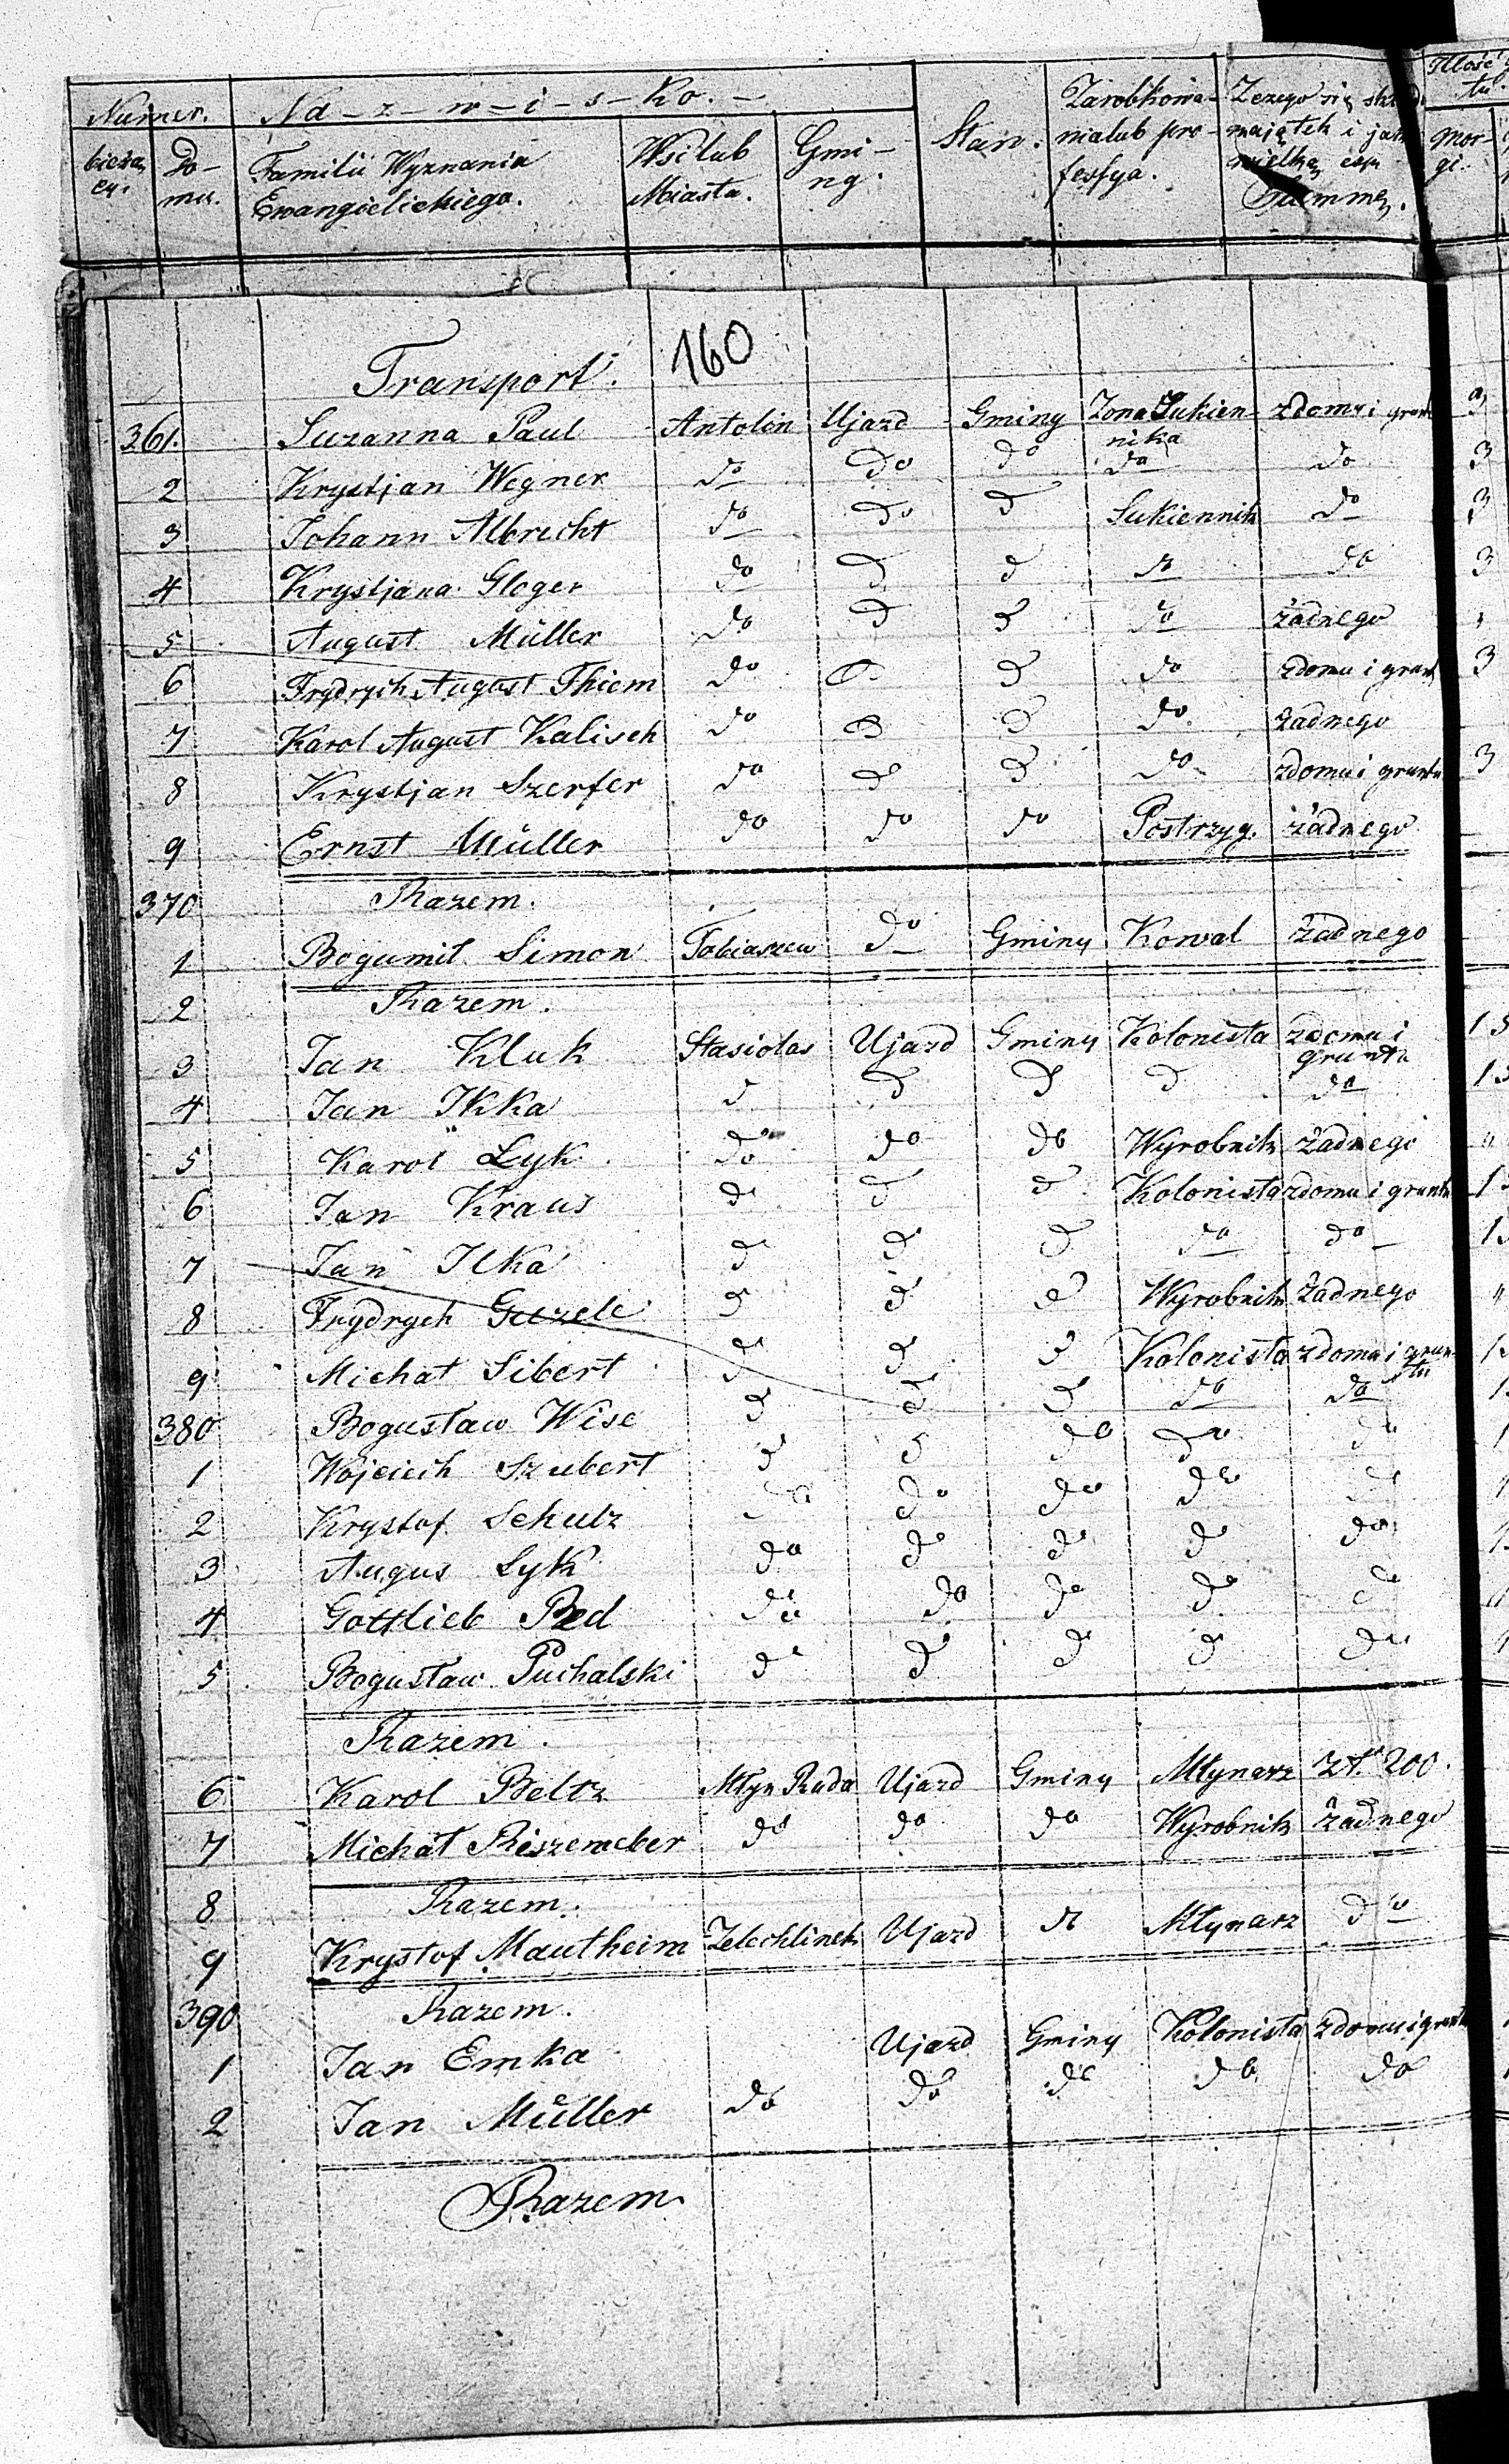 Numer. Na-z-w-i-s-ko.- Stan. Zarobkowa- Zczego się skład Ilość
bieżą do- Familii Wyznania Wsi lub Gmi- nia lub pro- majątek i jak Mor-
cy. mu. Ewangielickiego. Miasta. ny. fessya. wielką Summę. gi.
Transport. 160
361. Suzanna Paul Antolin Ujazd Gminy Zona Sukien- zdomu i grunt
nika
2 Krystjan Wegner do do do do do 3
3 Johann Albrecht do do d Sukiennik do 3
4 Krystjana Gloger do d d do do 3
5 August Müller do d d do żadnego "
6 Frydrych August Thiem do d d do zdomu i grunt 3
7 Karol August Kalisch do d d do żadnego
8 Krystjan Szerfer do d d do zdomu i gruntu 3
9 Ernst Müller do do do Postrzyg. żadnego
370 Razem.
1 Bogumił Simon Tobiaszew do Gminy Kowal żadnego
2 Razem.
3 Jan Kluk Stasiolas Ujazd Gminy Kolonista zdomu i 15
gruntu
4 Jan Ikka d d d d do 15
5 Karol Lyk do do do Wyrobnik żadnego "
6 Jan Kraus d d d Kolonista zdomu i gruntu 1
7 Jan Ilka d d d do do 1
8 Frydrych Guzele d d d Wyrobnik żadnego "
9 Michał Sibert d d d Kolonista zdomu i grun- 1
tu
380 Bogusław Wise d d d do do 1
1 Wojciech Szubert d d do do do 1
2 Krystof Schulz do do do do d 1
3 Augus Lyk do d d d do 1
4 Gottlieb Bed do do do do d
5 Bogusław Puchalski d d d d do
Razem.
6 Karol Beltz Młyn Ruda Ujazd Gminy Młynarz zł. 200.
7 Michał Riszemeber do do do Wyrobnik żadnego
8 Razem.
9 Krystof Mautheim Zelechlinek Ujazd do Młynarz do
390 Razem.
1 Jan Emka Ujazd Gminy Kolonista zdomu i gruntu
2 Jan Müller do do do do do
Razem